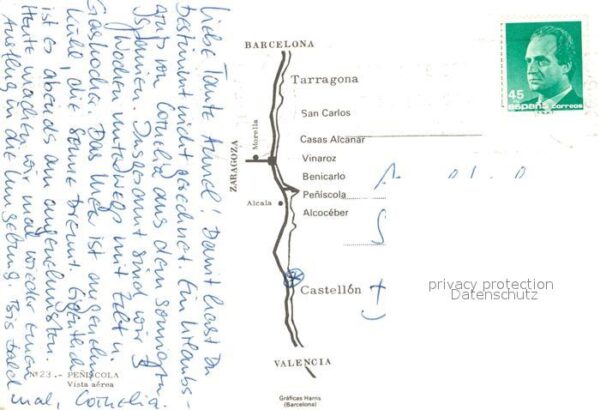 Liebe Tante Aurel! Damit hast Du
bestimmt nicht gerechnet. Ein Urlaubs-
gruß von Cornelia aus dem sonnigen
Spanien. Insgesamt sind wir 3
Wochen unterwegs mit Zelt u.
Das Meer ist angenehm
kühl, die Sonne brennt. Eigentlich
ist es abends am angenehmsten.
Heute machten wir mal wieder einen
Ausflug in die Umgebung. Bis bald
mal, Cornelia.
BARCELONA
Tarragona
San Carlos
Casas Alcanar
Morella
ZARAGOZA
Vinaroz
Benicarlo
Peñíscola
Alcala
Alcocéber
Castellón
VALENCIA
Nº 23.- PEÑISCOLA
Vista aérea
Gráficas Harris
(Barcelona)
45
españa correos
privacy protection
Datenschutz